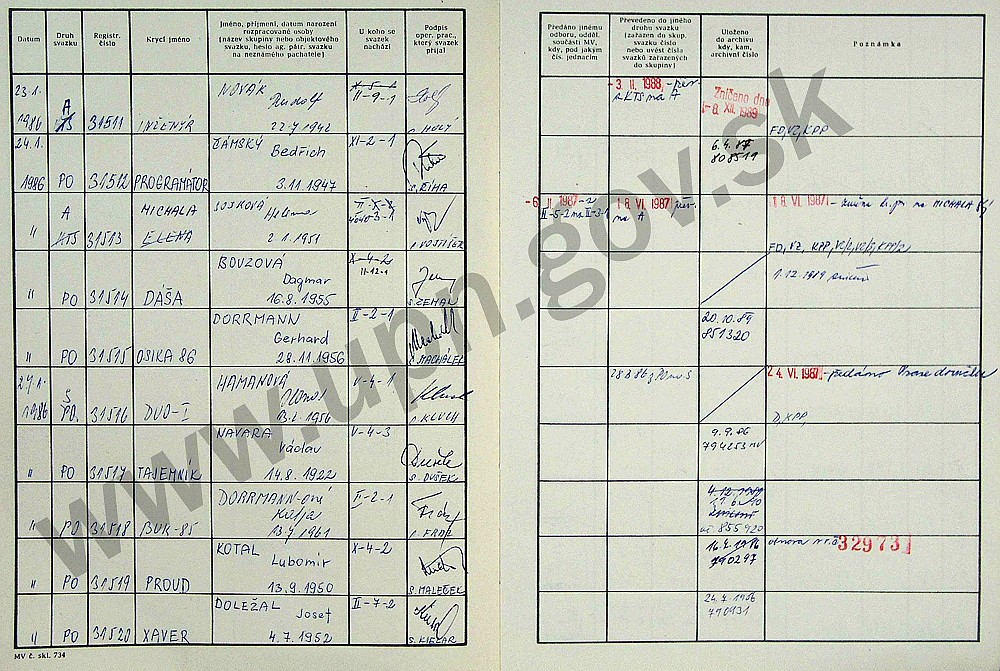 Datum
Druh svazku
Registr. číslo
Krycí jméno
Jméno, příjmení, datum narození rozpracované osoby (název skupiny nebo objektového svazku, heslo ag. pátr. svazku na neznámého pachatele)
U koho se svazek nachází
Podpis oper. prac., který svazek přijal
Předáno jinému odboru, odděl. součásti MV, kdy, pod jakým čís. jednacím
Převedeno do jiného druhu svazku (zařazen do skup. svazku číslo nebo uvést čísla svazků zařazených do skupiny)
Uloženo do archivu kdy, kam, archivní číslo
Poznámka
23.1. 1986 A KTS 31511 INŽENÝR NOVÁK Rudolf 22.7.1942 X-5-2 II-9-1
-3. II. 1988 z KTS na A Zničeno dne -8. XII. 1989 FD, VZ, KPP
24.1. 1986 PO 31512 PROGRAMÁTOR ŤÁMSKÝ Bedřich 3.11.1947 XI-2-1 s. ŘÍHA
6.4.87 808511
" A KTS 31513 MICHALA ELENA SOSKOVÁ Helena 2.1.1951
-6. II. 1987 II-5-2 na II-3-1 18. VI. 1987 na A 18. VI. 1987 na MICHALA
" PO 31514 DÁŠA BOUZOVÁ Dagmar 16.8.1955 X-4-2 II-12-1 s. ZEMAN
1.12.1989
" PO 31515 OSIKA 86 DORRMANN Gerhard 28.11.1956 II-2-1 s. MACHÁLEK
20.10.89 851320
24.1. 1986 S PO 31516 DUO-I HAMANOVÁ V-4-1
28.8.86 z PO na S 24. VI. 1987 D, KPP,
" PO 31517 TAJEMNÍK NAVARA Václav 14.8.1922 V-4-3 s. DUŠEK
9.9.86 794253 MV
" PO 31518 BUK-85 DORRMANN-ová II-2-1
855920
" PO 31519 PROUD KOTAL Lubomír 13.9.1950 X-4-2 s. MALEČEK
790297 32973
" PO 31520 XAVER DOLEŽAL Josef 4.7.1952 II-7-2
24.7.1986 790931
MV č. skl. 734
www.upn.gov.sk